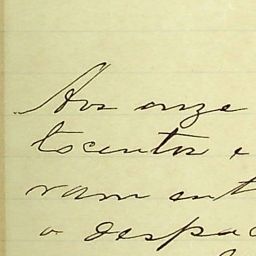 Aos onze
tocentos e
ram ent
o despac